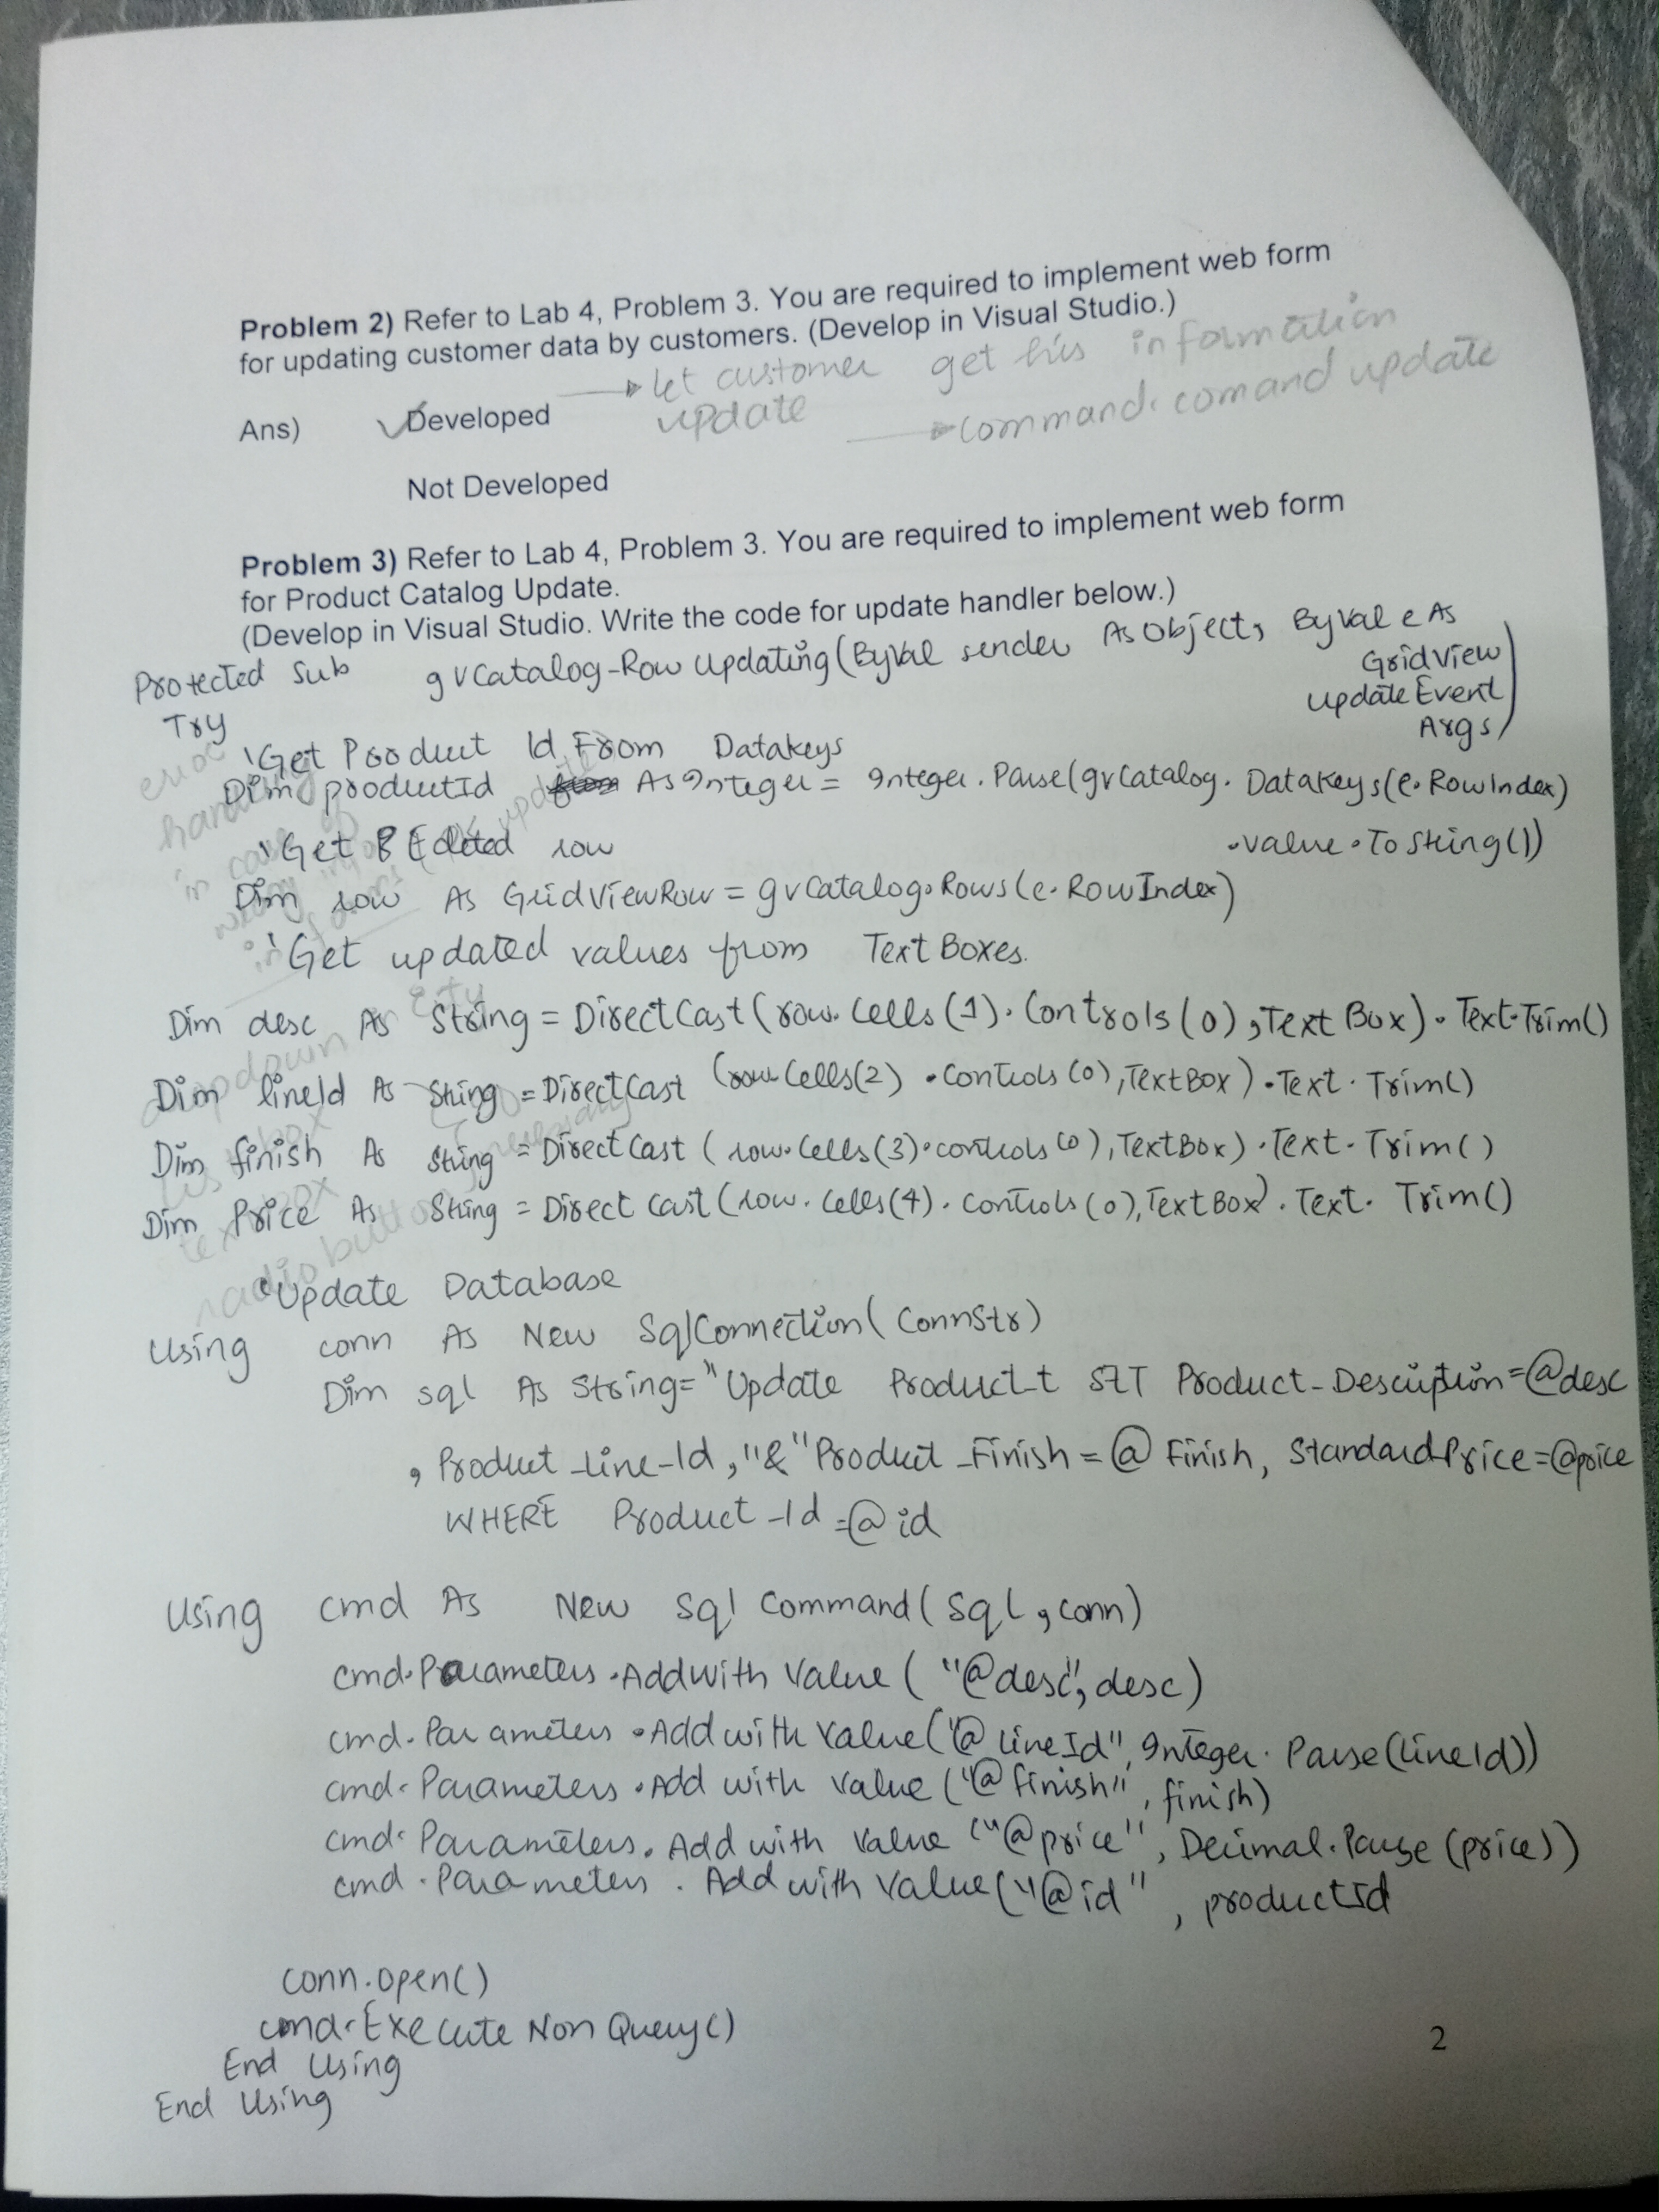 Problem 2) Refer to Lab 4, Problem 3. You are required to implement web form
for updating customer data by customers. (Develop in Visual Studio.)
→ let customer get his information
update → command. comand update
Ans) ✓Developed
Not Developed
Problem 3) Refer to Lab 4, Problem 3. You are required to implement web form
for Product Catalog Update.
(Develop in Visual Studio. Write the code for update handler below.)
Protected Sub gvCatalog-Row Updating (ByVal sender As Object, ByVal e As
GridView
Update Event
Args)
Try
'Get Product Id From Datakeys
Dim productId As Integer = Integer.Parse(gvCatalog.DataKeys(e.RowIndex)
.value.ToString())
'Get Edited row
Dim row As GridViewRow = gvCatalog.Rows(e.RowIndex)
'Get updated values from Text Boxes.
Dim desc As String = DirectCast (row.Cells(1).Controls(0), TextBox).Text.Trim()
Dim lineId As String = DirectCast (row.Cells(2).Controls(0), TextBox).Text.Trim()
Dim finish As String = DirectCast (row.Cells(3).controls(0), TextBox).Text.Trim()
Dim Price As String = Direct Cast (row.Cells(4).Controls(0), TextBox).Text.Trim()
error
handling
in case of
dropdown city
textbox
radio button
'Update Database
Using conn As New SqlConnection(ConnStr)
Dim sql As String= "Update Product_t SET Product-Description=@desc
, Product_Line-Id,"&"Product_Finish=@Finish, StandardPrice=@price
WHERE Product-Id=@id
Using cmd As New Sql Command(sql, conn)
cmd.Parameters.AddWith Value ("@desc", desc)
cmd.Parameters.Add with Value("@LineId", Integer.Parse(lineId))
cmd.Parameters.Add with Value ("@finish", finish)
cmd.Parameters.Add with Value ("@price", Decimal.Parse (price))
cmd.Parameters.Add with Value("@id", productId
conn.open()
cmd.Execute Non Query()
End Using
End Using
2